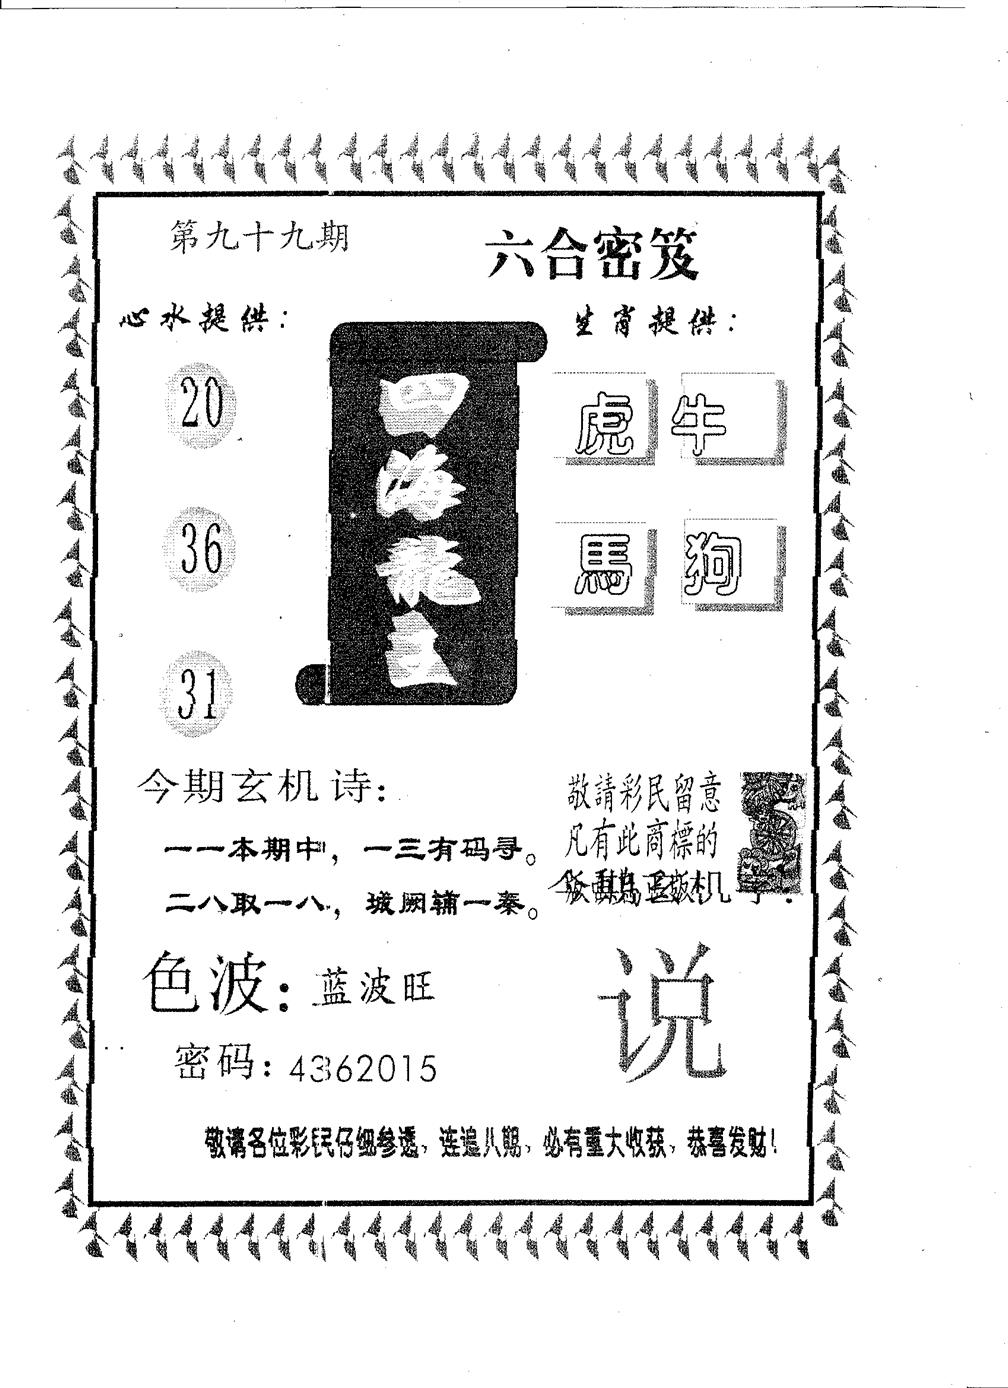 第九十九期
六合密笈
心水提供：
生肖提供：
20
36
31
四海龍
虎 牛
馬 狗
今期玄机诗：
一一本期中，一三有码寻。
二八取一八，城阙辅一秦。
敬請彩民留意
凡有此商標的
色波：蓝波旺
密码：4362015
说
敬请各位彩民仔细参透，连追八期，必有重大收获，恭喜发财！